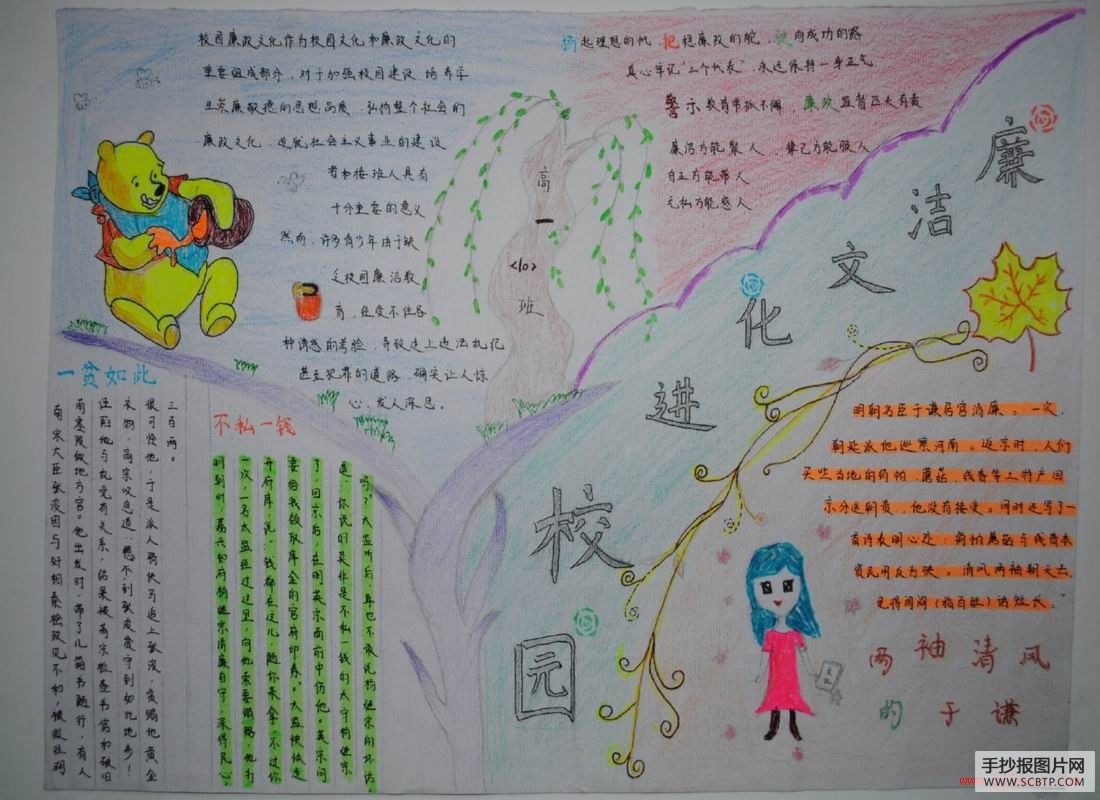 校园廉政文化作为校园文化和廉政文化的
重要组成部分，对于加强校园建设，培养学
生崇廉敬德的思想品质，弘扬整个社会的
廉政文化，造就社会主义事业的建设
者和接班人具有
十分重要的意义
然而，许多青少年由于缺
乏校园廉洁教
育，经受不住各
种诱惑的考验，导致走上违法乱纪
甚至犯罪的道路，确实让人惊
心，发人深思。
高
一
<10>
班
扬起理想的帆，把稳廉政的舵，驶向成功的路
真心牢记"三个代表"，永远保持一身正气
警示教育常抓不懈，廉政监督匹夫有责
廉洁方能聚人，律己方能服人
自正方能带人
无私方能感人
廉洁文化进校园
一贫如此
南宋大臣张浚因与奸相秦桧政见不和，被贬往湖
南零陵做地方官。他出发时，带了几箱书随行，有人
诬告他与乱党有关系，结果被高宗检查书信和破旧
衣物，高宗叹息道：想不到张浚贫守到如此地步！
很可怜他，于是派人骑快马追上张浚，资赐他黄金
三百两。
不私一钱
明朝时，嘉兴知府杨继宗清廉自守，深得民心。
一次，一名太监经过这里，向他索要贿赂，他打
开府库，说：钱都在这儿，随你来拿，不过你
要给我领取库金的官府印券。"太监怏怏走
了，回京后，在明英宗面前中伤他。英宗问
道，你说的莫非是不私一钱的太守杨继宗
吗？太监听后，再也不敢说杨继宗的坏话。
明朝名臣于谦居官清廉。一次，
朝廷派他巡察河南。返京时，人们
买些当地的绢帕、蘑菇、线香等土特产回
京分送朝贵，他没有接受。同时还写了一
首诗表明心迹：绢帕蘑菇与线香本
资民用反为殃。清风两袖朝天去，
免得闾阎（指百姓）话短长。
两袖清风
的于谦
手抄报图片网
WWW.SCBTP.COM